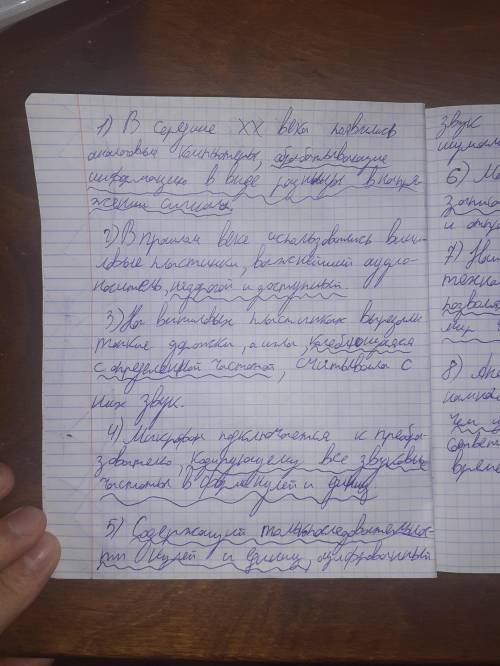 1) В середине XX века появились
аналоговые компьютеры, обрабатывающие
информацию в виде разницы в напря
жении сигнала
2) В прошлом веке использовались вини-
ловые пластинки, важнейший аудио-
носитель, недорогой и доступный.
3) На виниловых пластинках вырезали
тонкие дорожки, а игла, колеблющаяся
с определенной частотой, считывала с
них звук.
4) Микрофон подключается к преобра-
зователю, кодирующему все звуковые
частоты в форме нулей и единиц
5) Содержащий только последовательнос-
ти нулей и единиц, оцифрованный
звук
6)
и
7)
мир
8)